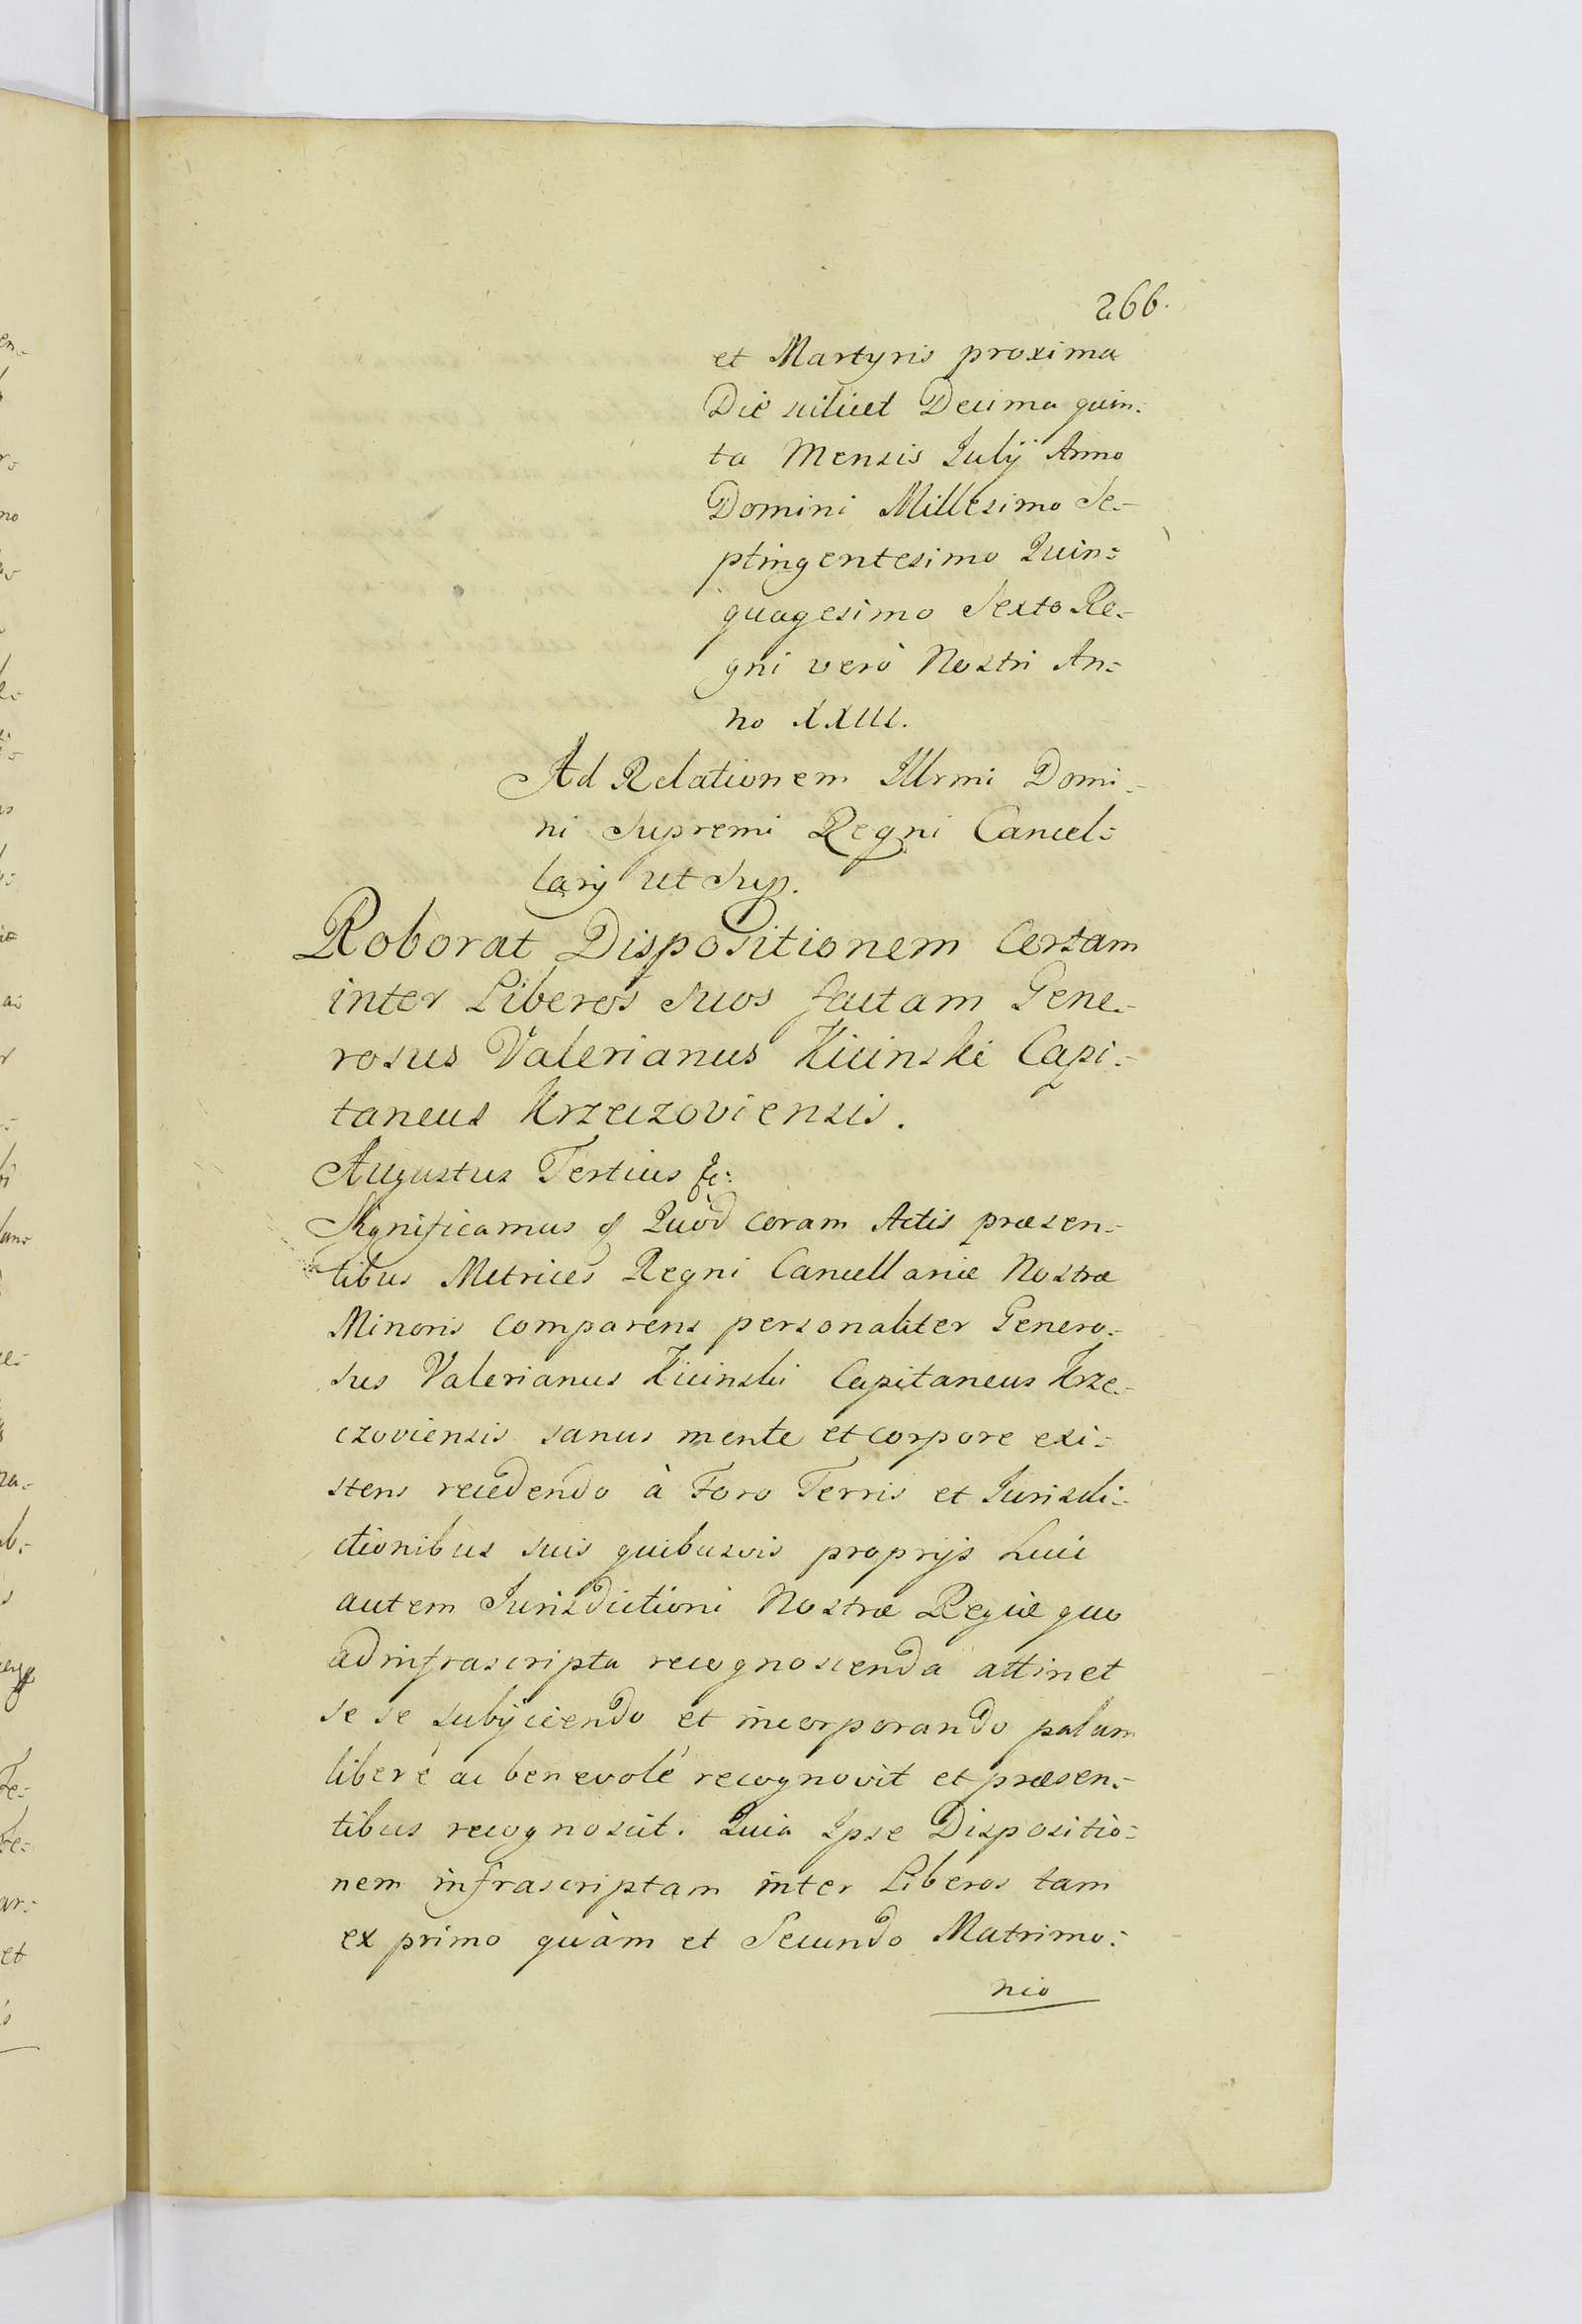 266.
et Martyris proxima
Die scilicet Decima quin-
ta Mensis Julij Anno
Domini Millesimo Se-
ptingentesimo Quin-
quagesimo Sexto Re-
gni verò Nostri An-
no XXIII.
Ad Relationem Illrmi Domi-
ni Supremi Regni Cancel-
larij ut Sup.
Roborat Dispositionem Certam
inter Liberos Suos factam Gene-
rosus Valerianus Kicinski Capi-
taneus Krzeczoviensis.
Augustus Tertius &c:
Significamus & Quòd coram Actis præsen-
tibus Metrices Regni Cancellariæ Nostræ
Minoris comparens personaliter Genero-
sus Valerianus Kicinski Capitaneus Krze-
czoviensis sanus mente et corpore exi-
stens recedendo à Foro Terris et Jurisdi-
ctionibus suis quibusvis proprijs huic
autem Jurisdictioni Nostræ Regiæ quo
ad infrascripta recognoscenda attinet
se se subijciendo et incorporando palam
liberé ac benevolé recognovit et præsen-
tibus recognoscit. Quia Ipse Dispositio-
nem infrascriptam inter Liberos tam
ex primo quàm et Secundo Matrimo-
nio